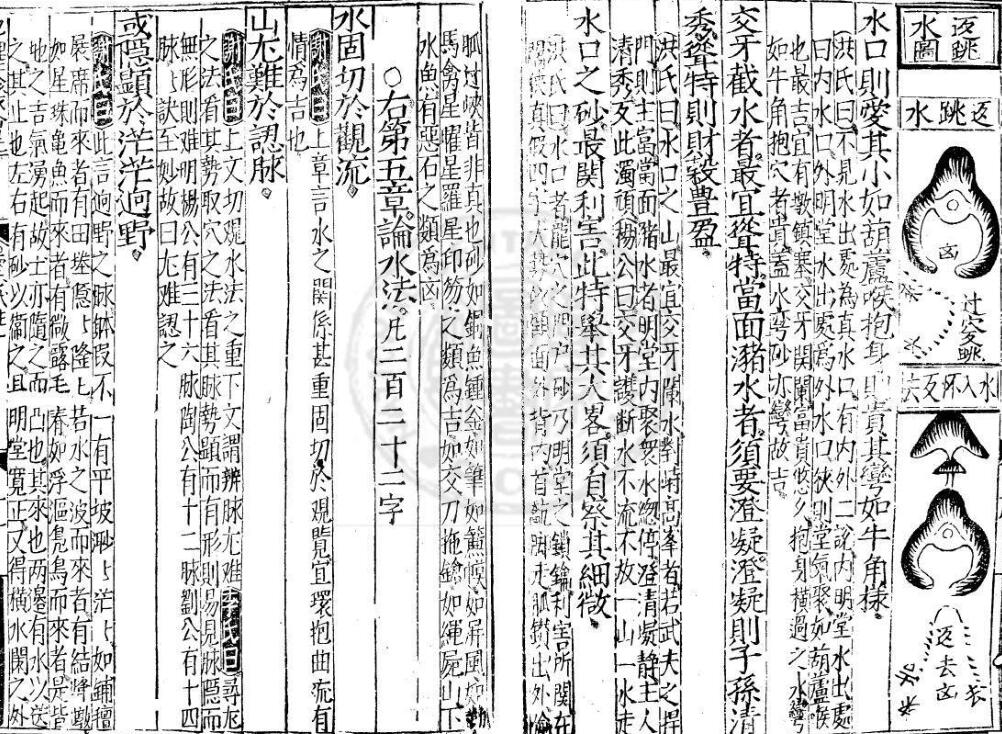 返跳水圖
返跳水
凶
过穴跳
水入怀反去
返去凶
水口則愛其小如葫蘆喉抱身則貴其彎如牛角樣
洪氏曰不見水出處為真水口有內外二說內明堂水出處
曰內水口外明堂水出處為外水口狹則堂氣聚如葫蘆喉
也最吉宜有敦鎮塞交牙関闌富貴悠久抱身橫過之水彎
如牛角抱穴者貴蓋水彎砂亦彎故吉
交牙截水者最宜聳特當面瀦水者須要澄凝澄凝則子孫清
秀聳特則財穀豊盈
洪氏曰水口之山最宜交牙闌水對峙高峯者若武夫之捍
門則主富當面瀦水者明堂內聚衆水緫停澄清凝静主人
清秀反此濁頑楊公曰交牙鏁断水不流不放一山一水走
水口之砂最関利害此特舉其大畧須自祭其細微
洪氏曰水口者龍穴之門户砂乃明堂之鎖鑰利害所関在
狐过峽皆非真也砂如銅魚鍾金如筆如簾幙如屏風如
馬禽星曜星羅星印笏之類為吉如交刀拖鎗如繩屍山下
水魚有惡石之類為凶
○右第五章論水法凡二百二十二字
水固切於觀流
謝氏曰上章言水之関係甚重固切於观覽宜環抱曲流有
情為吉也
山尤難於認脉
謝氏曰上文切观水法之重下文謂辨脉尤难李氏曰尋龙
之法看其势取穴之法看其脉勢顯而有形則易見脉隱而
無形則难明楊公有三十六脉陶公有十二脉劉公有十四
脉訣至妙故曰尤难認之
或隱顯於茫茫逈野
謝氏曰此言逈野之脉無叚不一有平坡聊々茫々如鋪擅
展席而來者有田塍隐々隆々若水之波而來者有結降勘
如星珠亀魚而來者有微露毛春如浮漚凫鳥而來者是皆
地之吉氣湧起故土亦隨之而凸也其來也两邉有水以送
之其止也左右有砂以衛之且明堂寛正又得橫水闌之外